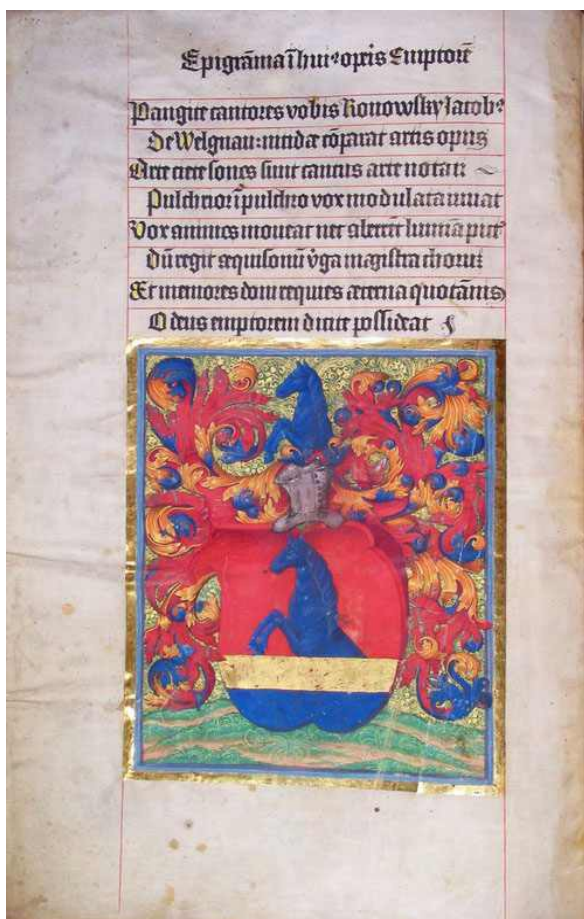 Epigrāma ī hui⁹ opīs Emptorē
Pangite cantores vobis Ronowsky Jacob⁹
De Welgnau: nitidæ cōparat artis opus
Arte ciete sonos sunt cantus arte notati
Pulchrior ī pulchro vox modulata iuuat
Vox animos moueat nec aberrēt lumīa
Dū regit æquisonū v̄ga magistra chorū
Et memores domī requies æterna quotānis
O deus emptorem dicite possideat